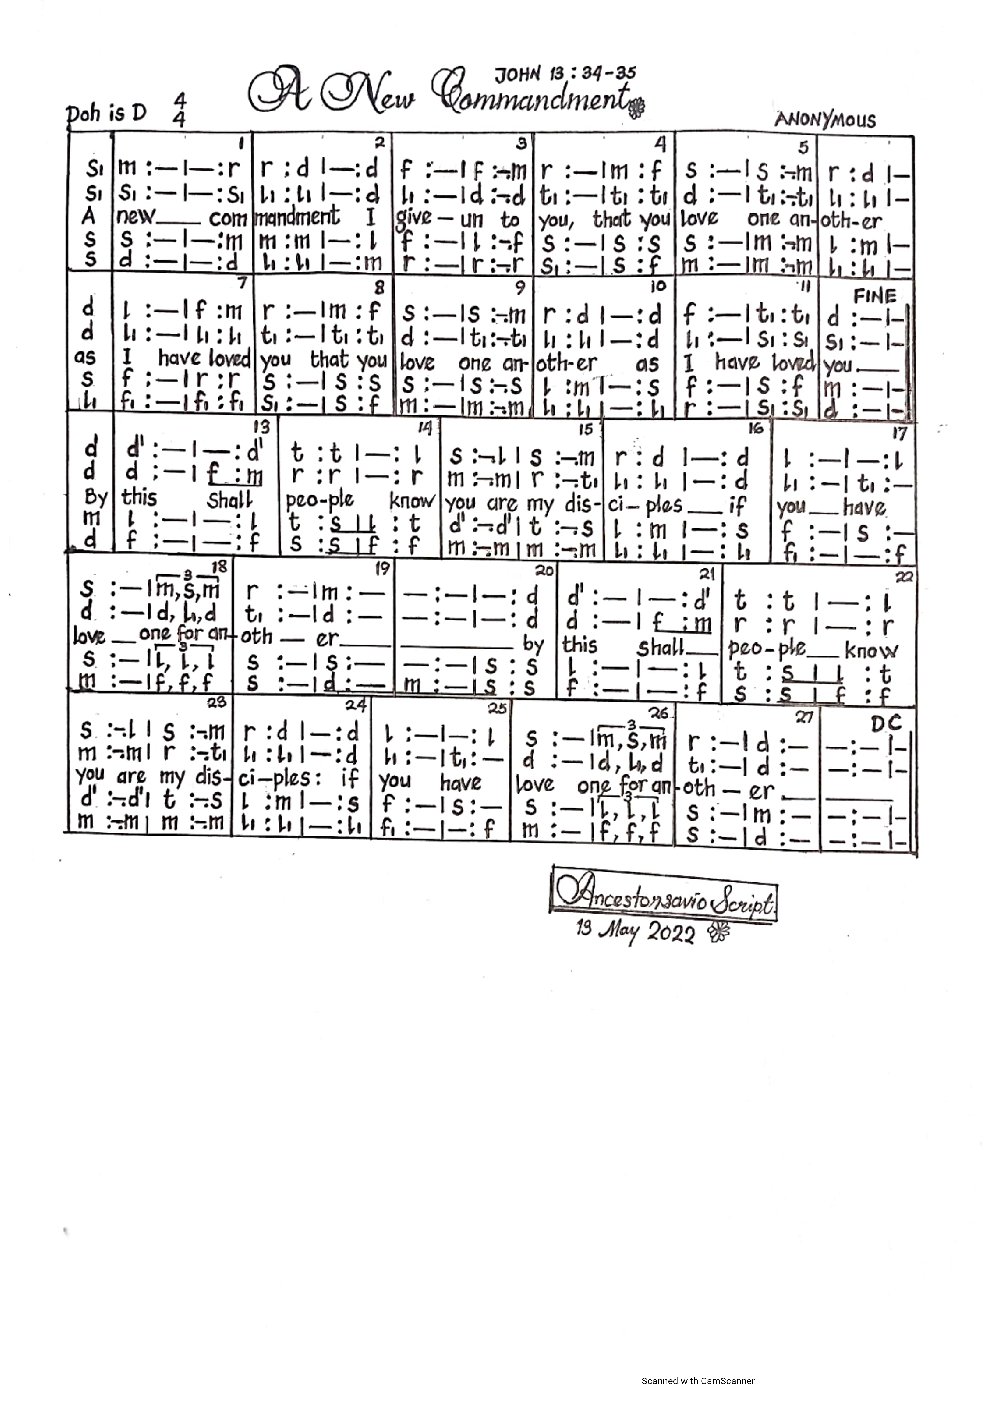 JOHN 13 : 34-35
A New Commandment
Doh is D 4/4
ANONYMOUS
1 2 3 4 5
s₁ | m :—|—:r | r :d |—:d | f :—|f :-.m | r :—|m :f | s :—|s :-.m | r :d |—
s₁ | s₁ :—|—:s₁ | l₁ :l₁ |—:d | l₁ :—|d :-.d | t₁ :—|t₁ :t₁ | d :—|t₁ :-.t₁ | l₁ :l₁ |—
A new___ com mandment I give - un to you, that you love one an-oth-er
s | s :—|—:m | m :m |—:l | f :—|l :-.f | s :—|s :s | s :—|m :-.m | l :m |—
s | d :—|—:d | l₁ :l₁ |—:m | r :—|r :-.r | s₁ :—|s :f | m :—|m :-.m | l₁ :l₁ |—
7 8 9 10 11 FINE
d | l :—|f :m | r :—|m :f | s :—|s :-.m | r :d |—:d | f :—|t₁ :t₁ | d :—|—
d | l₁ :—|l₁ :l₁ | t₁ :—|t₁ :t₁ | d :—|t₁ :-.t₁ | l₁ :l₁ |—:d | l₁ :—|s₁ :s₁ | s₁ :—|—
as I have loved you that you love one an-oth-er as I have loved you.___
s | f :—|r :r | s :—|s :s | s :—|s :-.s | l :m |—:s | f :—|s :f | m :—|—
l₁ | f₁ :—|f₁ :f₁ | s₁ :—|s :f | m :—|m :-.m | l₁ :l₁ |—:l₁ | r :—|s₁ :s₁ | d :—|—
13 14 15 16 17
d | d' :—|—:d' | t :t |—:l | s :-.l|s :-.m | r :d |—:d | l :—|—:l
d | d :—|f :m | r :r |—:r | m :-.m|r :-.t₁ | l₁ :l₁ |—:d | l₁ :—|t₁ :—
By this Shall peo-ple know you are my dis-ci-ples___ if you__ have
m | l :—|—:l | t :s |l :t | d' :-.d'|t :-.s | l :m |—:s | f :—|s :—
d | f :—|—:f | s :s |f :f | m :-.m|m :-.m | l₁ :l₁ |—:l₁ | f₁ :—|—:f
18 19 20 21 22
3
s :—|m,s,m | r :—|m :— | —:—|—:d | d' :—|—:d' | t :t |—:l
d :—|d,l₁,d | t₁ :—|d :— | —:—|—:d | d :—|f :m | r :r |—:r
love __ one for an-oth — er___ ___ by this shall__ peo-ple__ know
3
s :—|l,l,l | s :—|s :— | —:—|s :s | l :—|—:l | t :s |l :t
m :—|f,f,f | s :—|d :— | m :—|s :s | f :—|—:f | s :s |f :f
23 24 25 26 27 DC
3
s :-.l|s :-.m | r :d |—:d | l :—|—:l | s :—|m,s,m | r :—|d :— | —:—|—
m :-.m|r :-.t₁ | l₁ :l₁ |—:d | l₁ :—|t₁ :— | d :—|d,l₁,d | t₁ :—|d :— | —:—|—
you are my dis-ci-ples: if you have love one for an-oth — er.___ ___
3
d' :-.d'|t :-.s | l :m |—:s | f :—|s :— | s :—|l,l,l | s :—|m :— | —:—|—
m :-.m|m :-.m | l₁ :l₁ |—:l₁ | f₁ :—|—:f | m :—|f,f,f | s :—|d :— | —:—|—
Ancestonsavio Script.
13 May 2022
Scanned with CamScanner